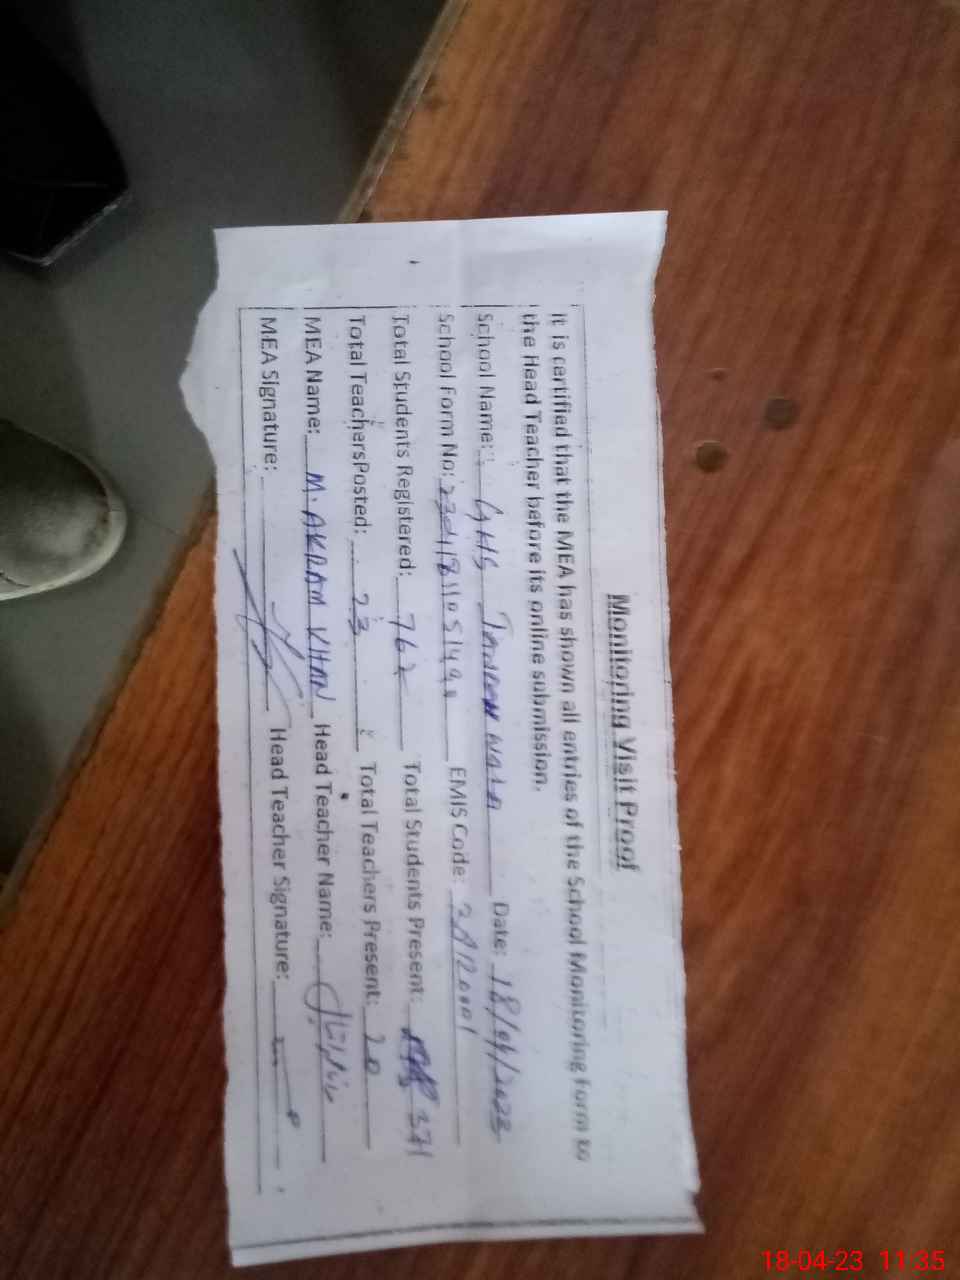 Monitoring Visit Proof
It is certified that the MEA has shown all entries of the School Monitoring form to
the Head Teacher before its online submission.
School Name: GHS WALA Date: 18/04/2023
School Form No: EMIS Code:
Total Students Registered: 762 Total Students Present: 371
Total Teachers Posted: 23 Total Teachers Present: 20
MEA Name: M. AKRAM KHAN Head Teacher Name:
MEA Signature: Head Teacher Signature:
18-04-23 11:35